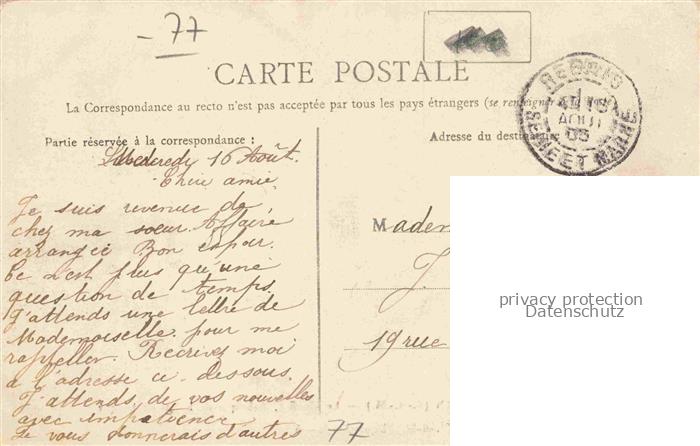 - 77
CARTE POSTALE
La Correspondance au recto n'est pas acceptée par tous les pays étrangers (se renseigner
REBAIS
16
AOUT
05
SEINE ET MARNE
Partie réservée à la correspondance :
Adresse du destinataire
Mercredi 16 Août.
Chère amie
Je suis revenue de
chez ma soeur. Affaire
arrangée Bon espoir.
Ce n'est plus qu'une
question de temps.
J'attends une lettre de
Mademoiselle pour me
rappeller. Récrivez moi
à l'adresse ci-dessous.
J'attends de vos nouvelles
avec impatience
Je vous donnerais d'autres
Madem
J.
19 rue
privacy protection
Datenschutz
77